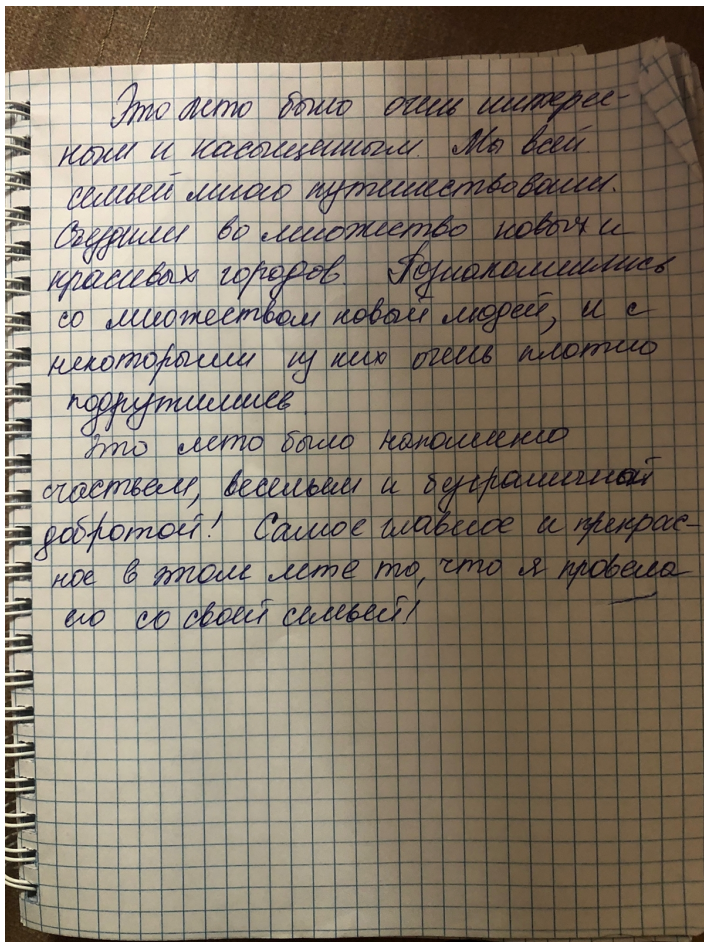 Это лето было очень интерес-
ным и насыщенным. Мы всей
семьёй много путешествовали.
Съездили во множество новых и
красивых городов. Познакомились
со множеством новый людей, и с
некоторыми из них очень плотно
подружились
Это лето было наполнено
счастьем, весельем и безграничной
добротой! Самое главное и прекрас-
ное в этом лете то, что я провела
его со своей семьей!